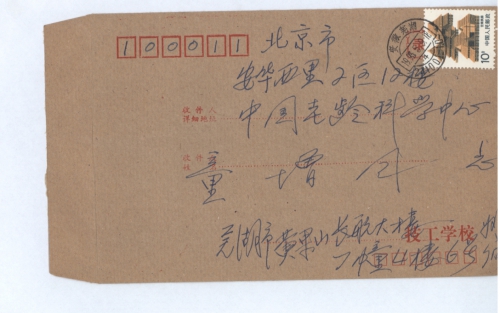 100011
北京市
安华西里2区12楼
收件人
详细地址
中国老龄科学中心
收件人
姓名
童增
芜湖市黄果山长航大楼
技工学校
二幢4楼
中国人民邮政